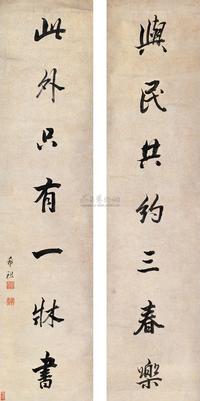 與民共約三春樂
此外只有一牀書
希祖